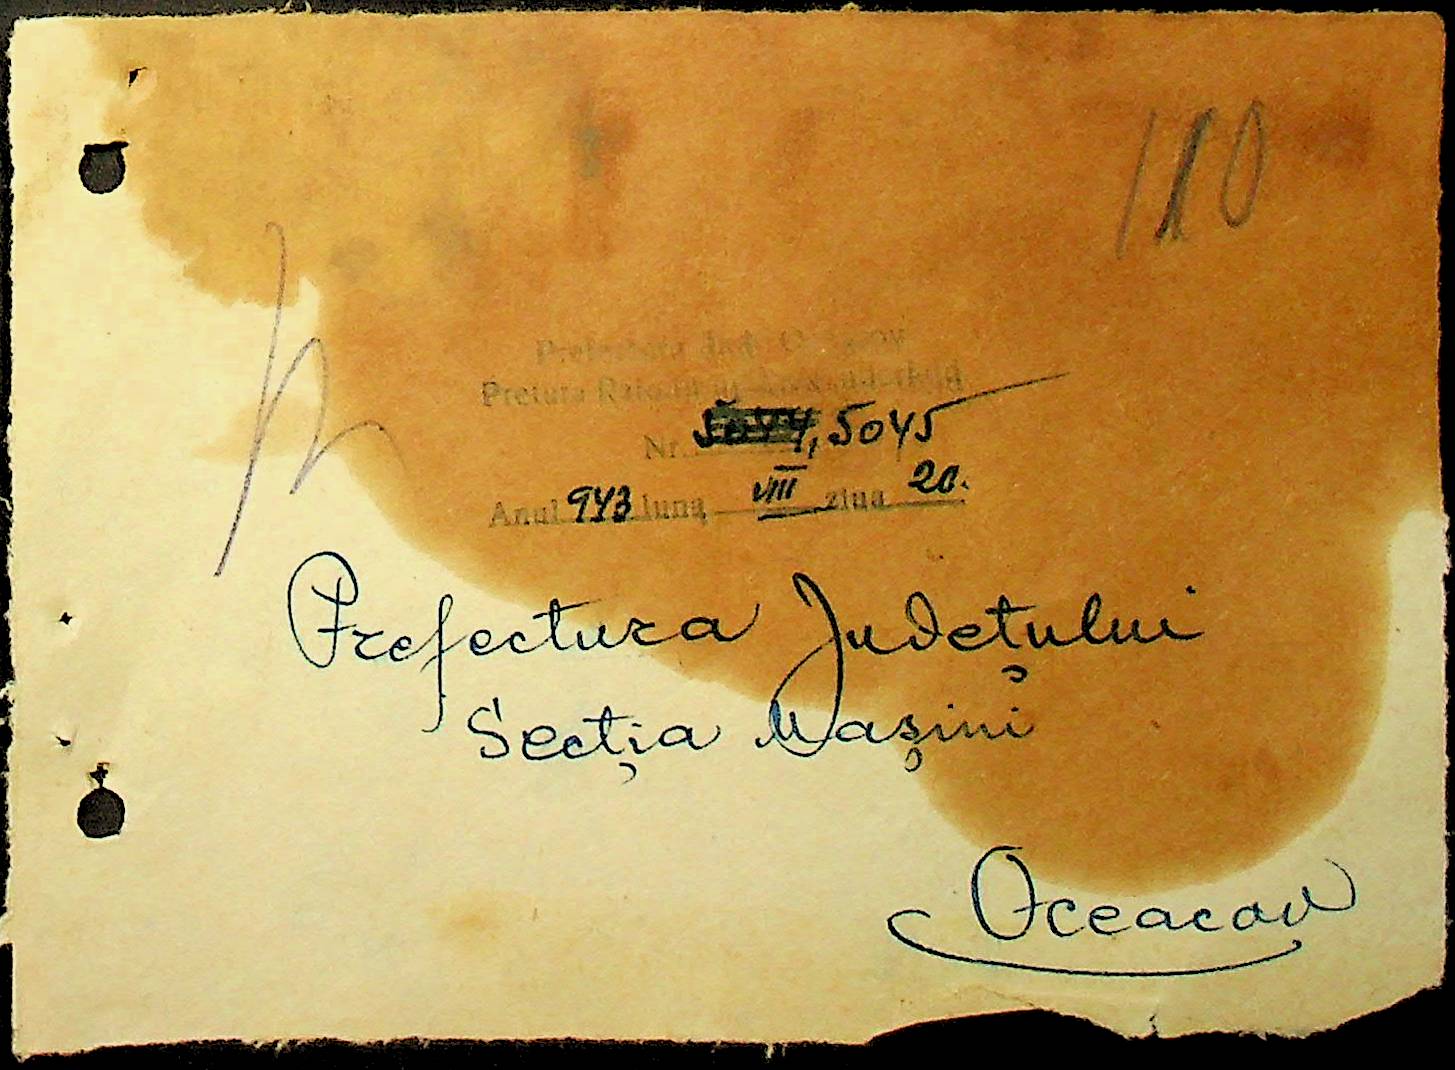 110
Prefectura Jud. Oceacov
Pretura Raionului
Nr. 5045
Anul 943 luna VIII ziua 20.
Prefectura Județului
Secția Mașini
Oceacov